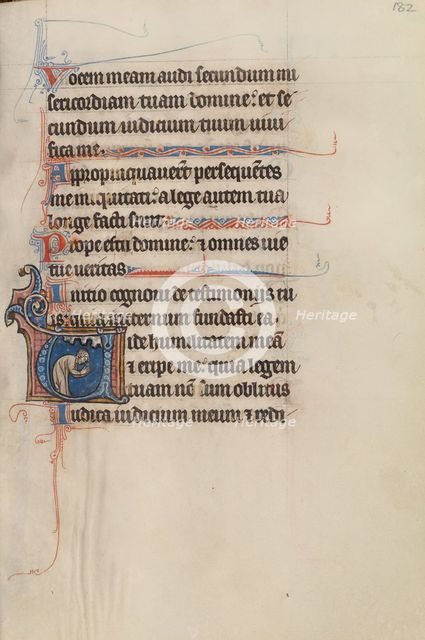 182
Vocem meam audi secundum mi
sericordiam tuam domine: et se
cundum iudicium tuum uiui
fica me.
Appropinquauerunt persequentes
me iniquitati: a lege autem tua
longe facti sunt
Prope es tu domine: & omnes uie
tue ueritas
Initio cognoui de testimonijs tu
is: quia in eternum fundasti ea.
Uide humilitatem meã
& eripe me: quia legem
tuam nõ sum oblitus
Iudica iudicium meum & redi
Heritage
Heritage
Heritage
Heritage
Heritage
Heritage